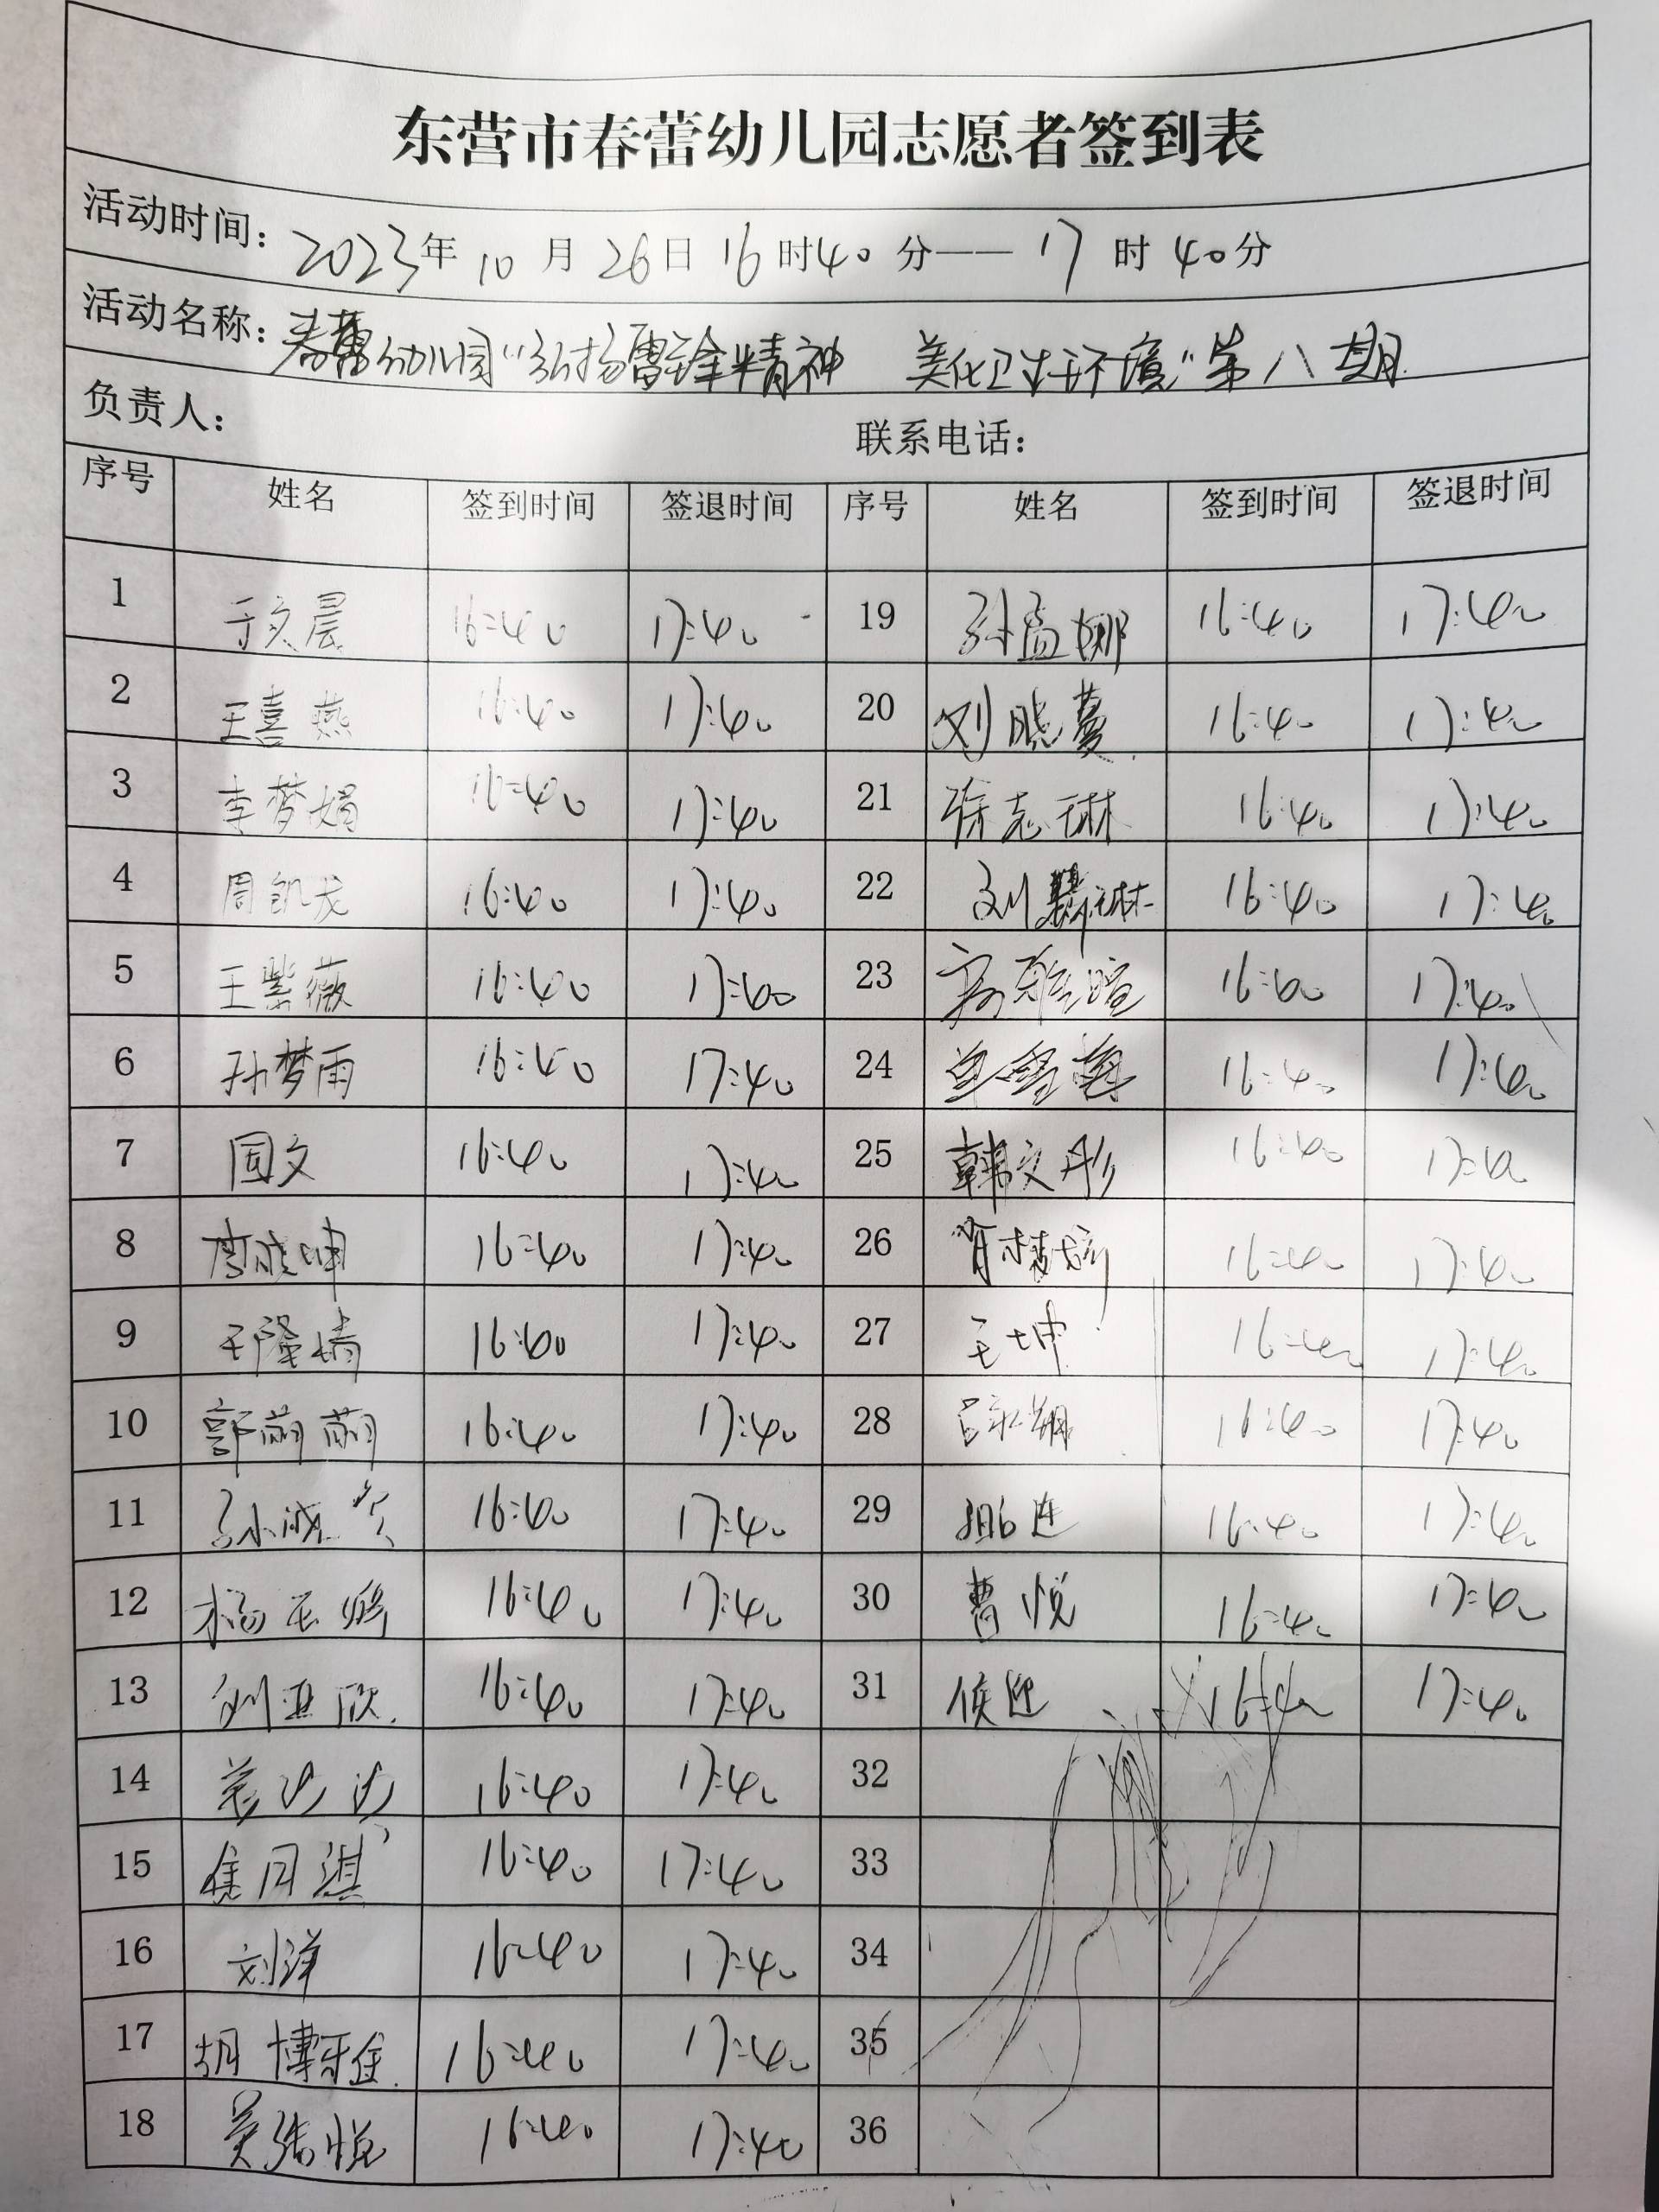 东营市春蕾幼儿园志愿者签到表
活动时间：2023年10月26日16时40分——17时40分
活动名称：春蕾幼儿园“弘扬雷锋精神 美化卫生环境”第八期
负责人： 联系电话：
序号 姓名 签到时间 签退时间 序号 姓名 签到时间 签退时间
1 于文晨 16:40 17:40 19 孙孟娜 16:40 17:40
2 王喜燕 16:40 17:40 20 刘晓蔓 16:40 17:40
3 李梦娟 16:40 17:40 21 徐志琳 16:40 17:40
4 周凯龙 16:40 17:40 22 刘 琳 16:40 17:40
5 王紫薇 16:40 17:40 23 16:40 17:40
6 孙梦雨 16:40 17:40 24 16:40 17:40
7 国文 16:40 17:40 25 韩文彤 16:40 17:40
8 李晓坤 16:40 17:40 26 16:40 17:40
9 王隆婧 16:40 17:40 27 王坤 16:40 17:40
10 郭萌萌 16:40 17:40 28 16:40 17:40
11 孙淑 16:40 17:40 29 16:40 17:40
12 杨 16:40 17:40 30 曹悦 16:40 17:40
13 刘亚欣 16:40 17:40 31 侯 16:40 17:40
14 16:40 17:40 32
15 月淇 16:40 17:40 33
16 刘洋 16:40 17:40 34
17 胡博雅 16:40 17:40 35
18 悦 16:40 17:40 36